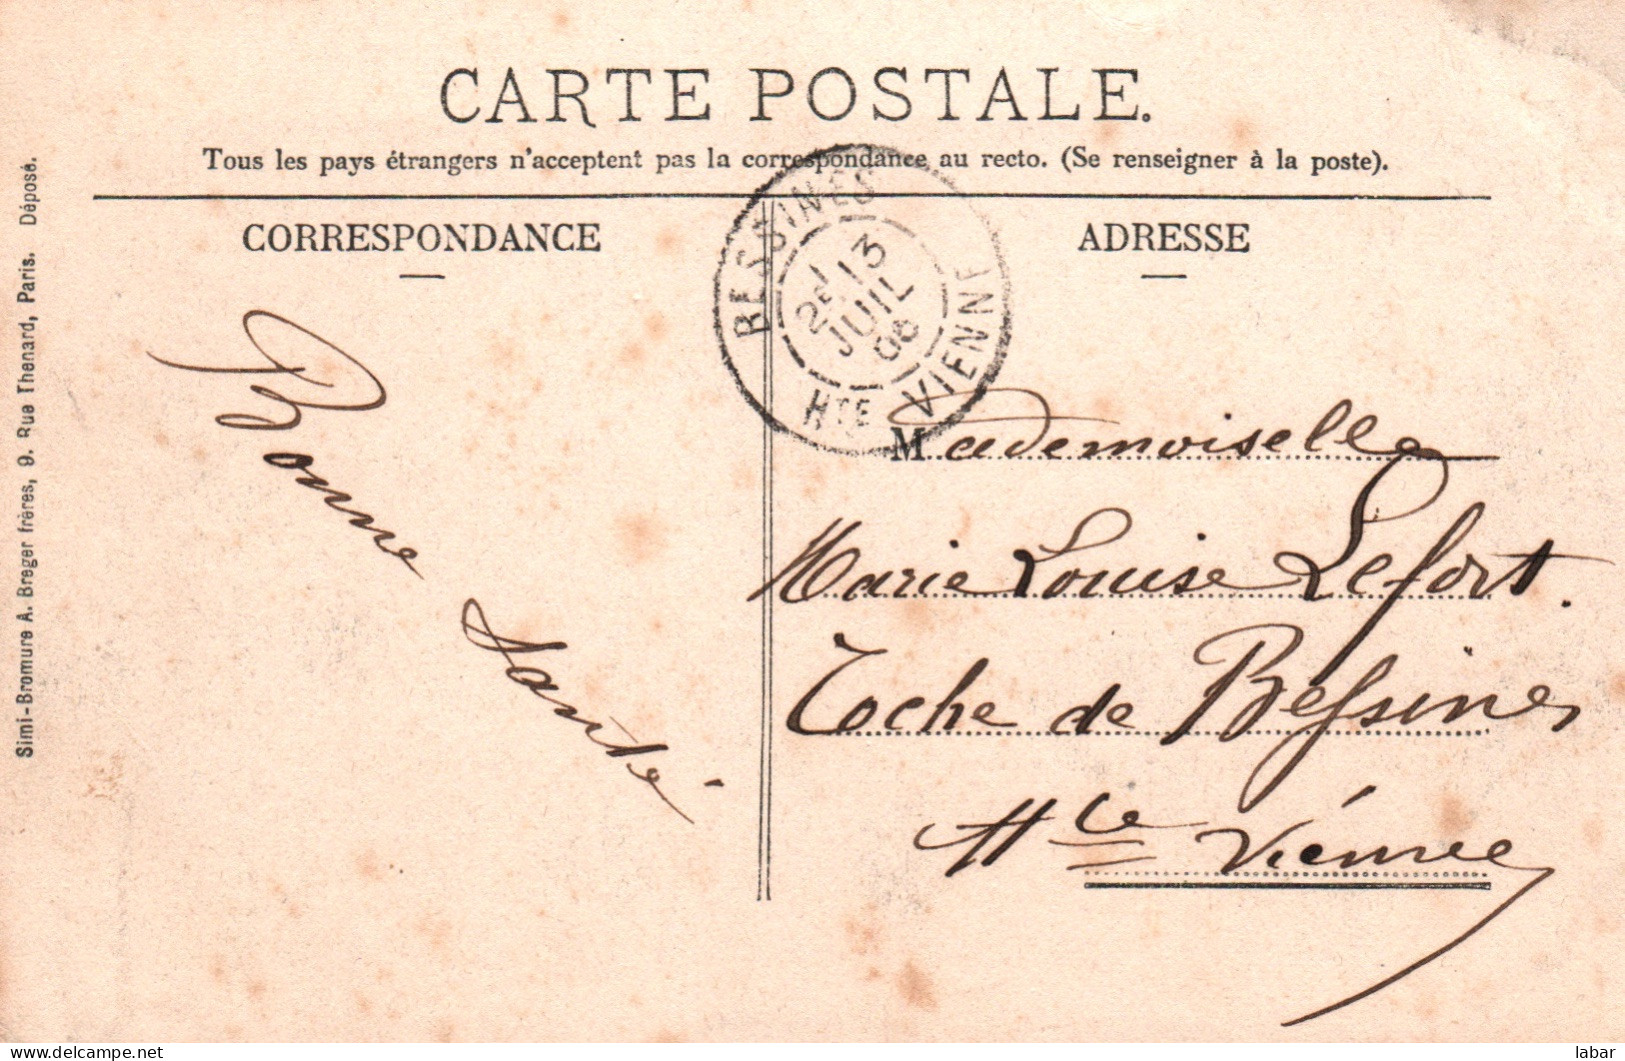 CARTE POSTALE.
Tous les pays étrangers n'acceptent pas la correspondance au recto. (Se renseigner à la poste).
CORRESPONDANCE
ADRESSE
BESSINES
13
JUIL
06
HTE VIENNE
Bonne
santé
Mademoiselle
Marie Louise Lefort.
Roche de Bessines
Hte Viénne
Simi-Bromure A. Breger frères, 9. Rue Thenard, Paris. Déposé.
https://www.delcampe.net
labar